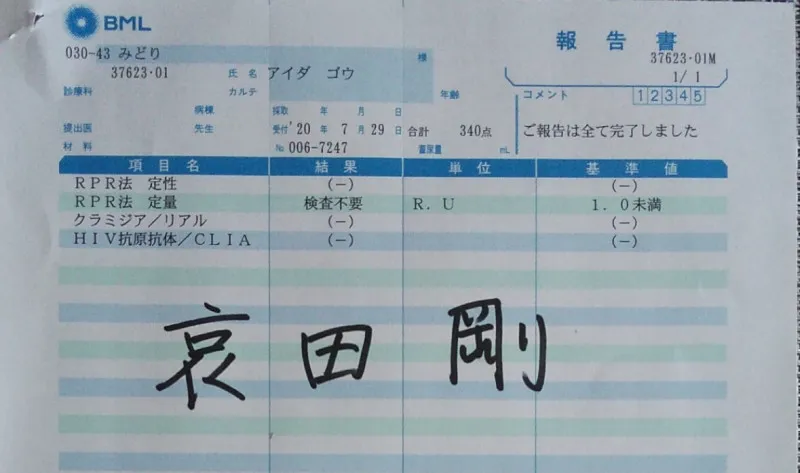 BML
報告書
030-43 みどり 様
37623-01M
37623-01 氏名 アイダ ゴウ
1/ 1
診療科 カルテ 年齢 コメント 1 2 3 4 5
病棟 採取 年 月 日
提出医 先生 受付 '20 年 7 月 29 日 合計 340点 ご報告は全て完了しました
材料 № 006-7247 蓄尿量 mL
項目名 結果 単位 基準値
RPR法 定性 (-) (-)
RPR法 定量 検査不要 R.U 1.0未満
クラミジア/リアル (-) (-)
HIV抗原抗体/CLIA (-) (-)
哀田剛